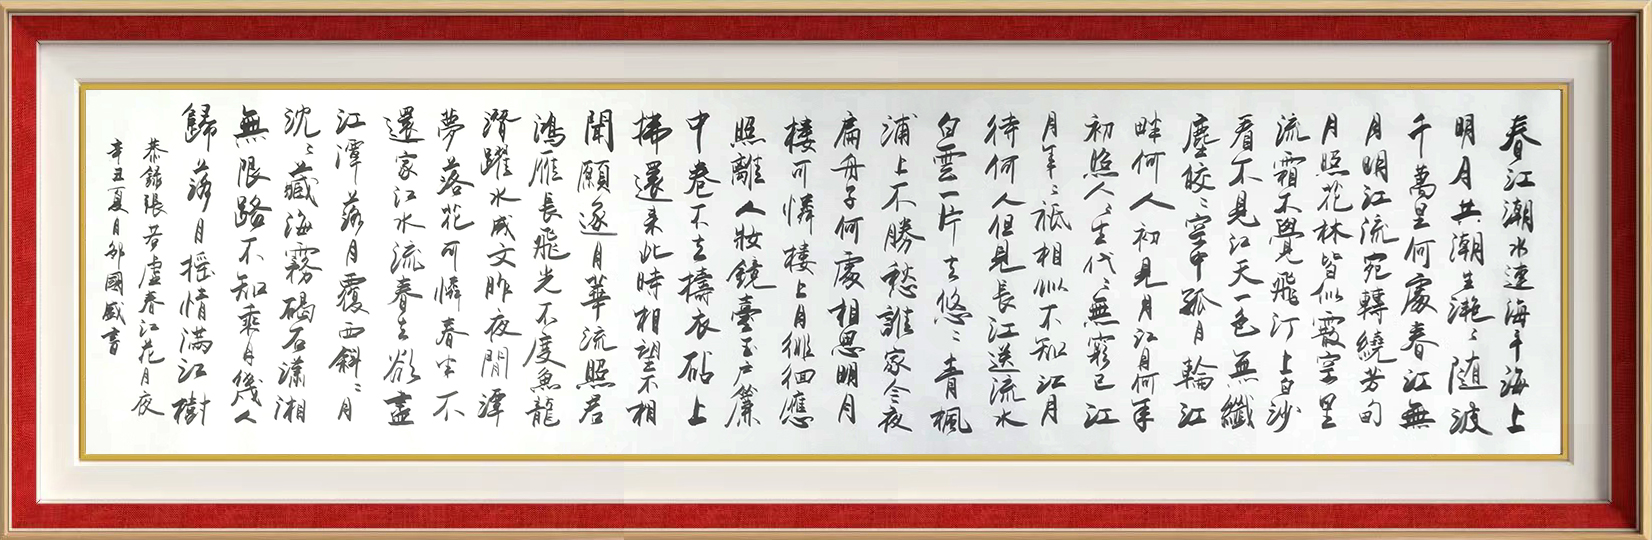 春江潮水連海平海上
明月共潮生灧〻随波
千萬里何處春江無
月明江流宛轉繞芳甸
月照花林皆似霰空里
流霜不覺飛汀上白沙
看不見江天一色無纖
塵皎〻空中孤月輪江
畔何人初見月江月何年
初照人〻生代〻無窮已江
月年〻祇相似不知江月
待何人但見長江送流水
白雲一片去悠〻青楓
浦上不勝愁誰家今夜
扁舟子何處相思明月
樓可憐樓上月徘徊應
照離人妝鏡臺玉户簾
中卷不去擣衣砧上
拂還来此時相望不相
聞願逐月華流照君
鴻雁長飛光不度魚龍
潛躍水成文昨夜閒潭
夢落花可憐春半不
還家江水流春去欲盡
江潭落月覆西斜〻月
沈〻藏海霧碣石瀟湘
無限路不知乘月幾人
歸落月摇情满江樹
恭錄張若虛春江花月夜
辛丑夏月邹國盛書